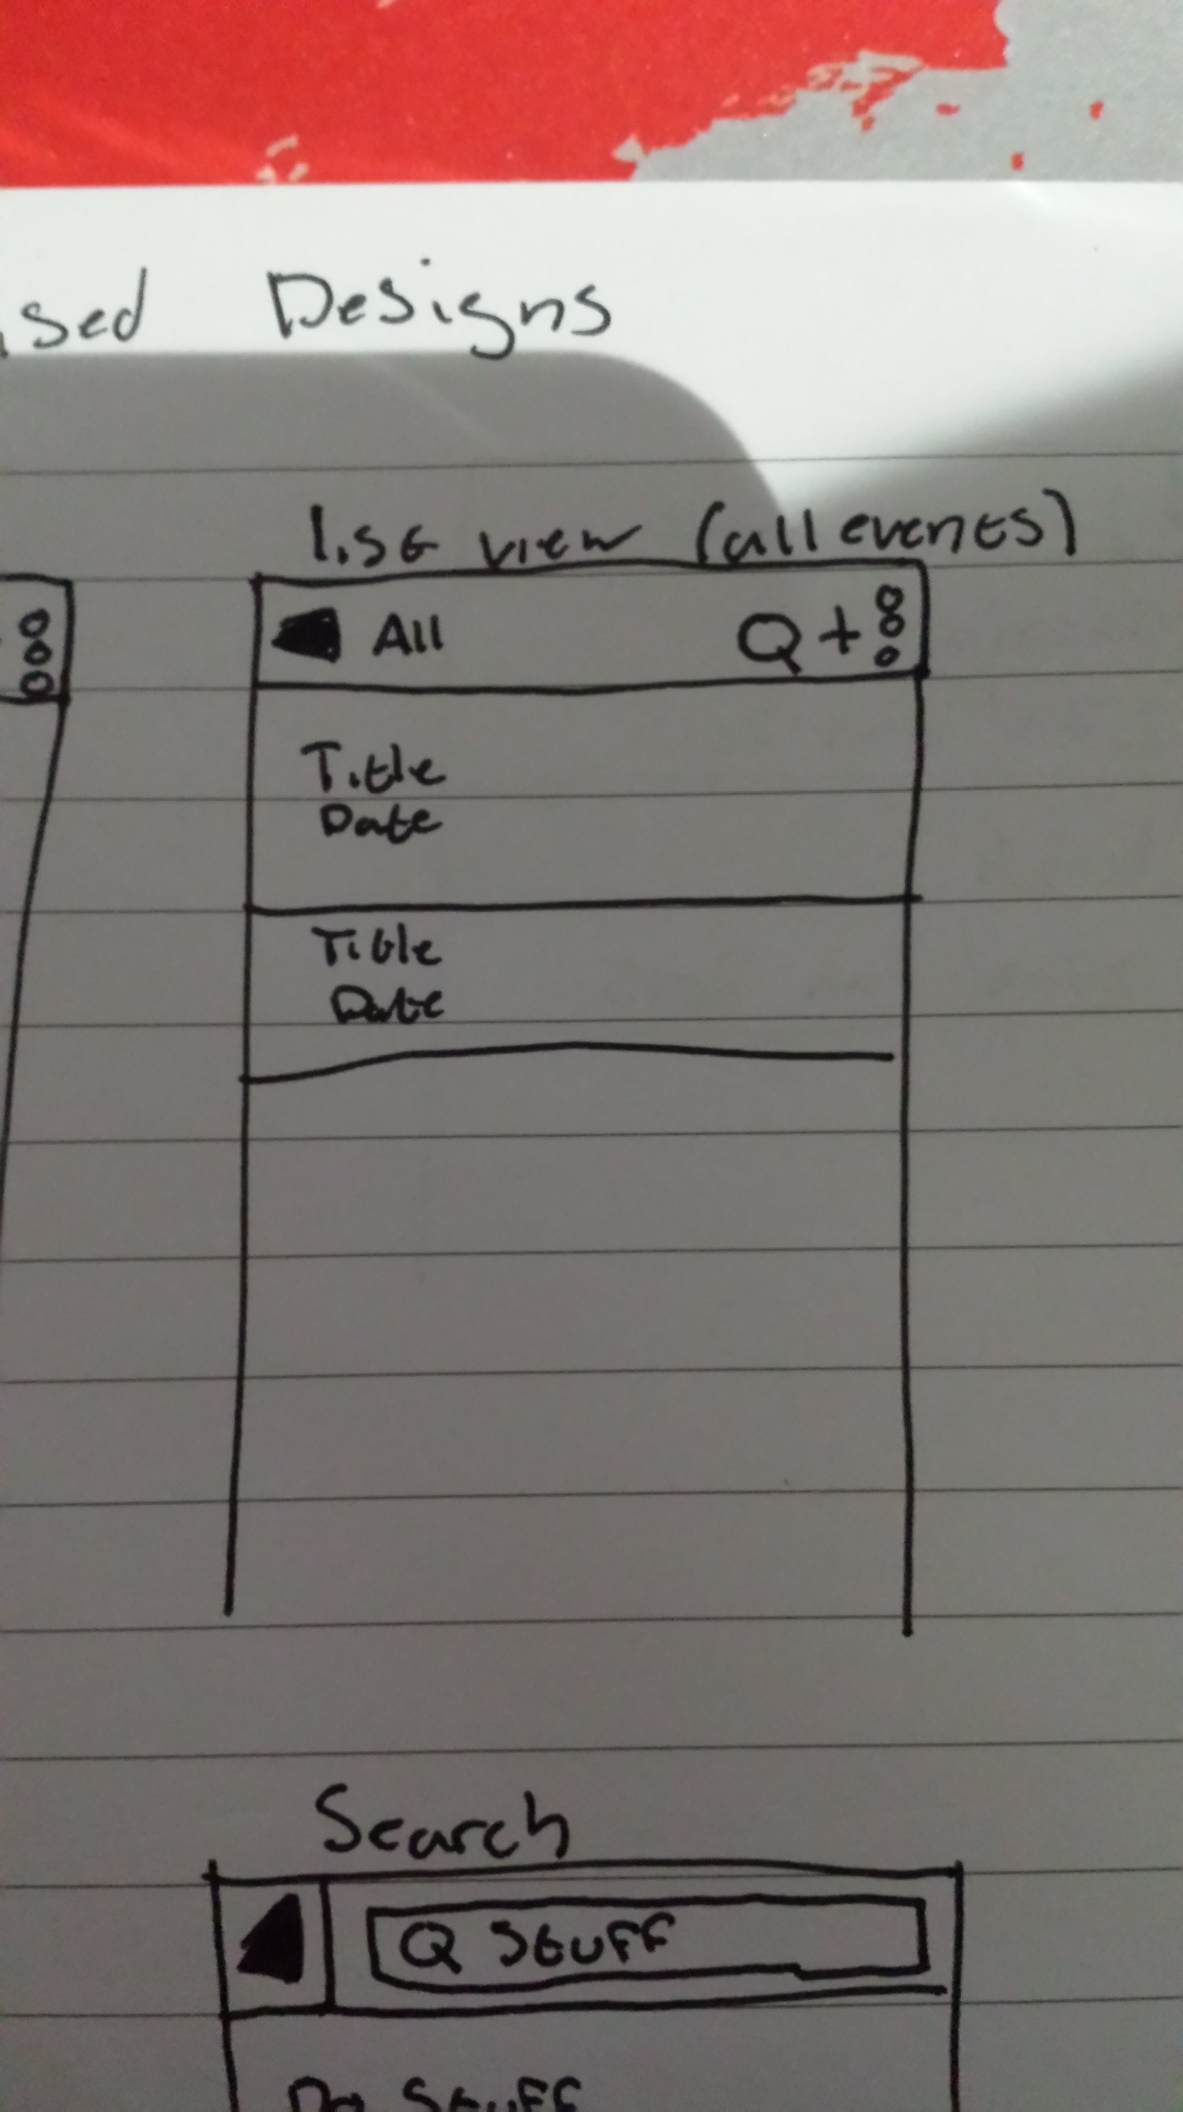 sed Designs
list view (all events)
All Q +
Title
Date
Title
Date
Search
Q Stuff
Do Stuff